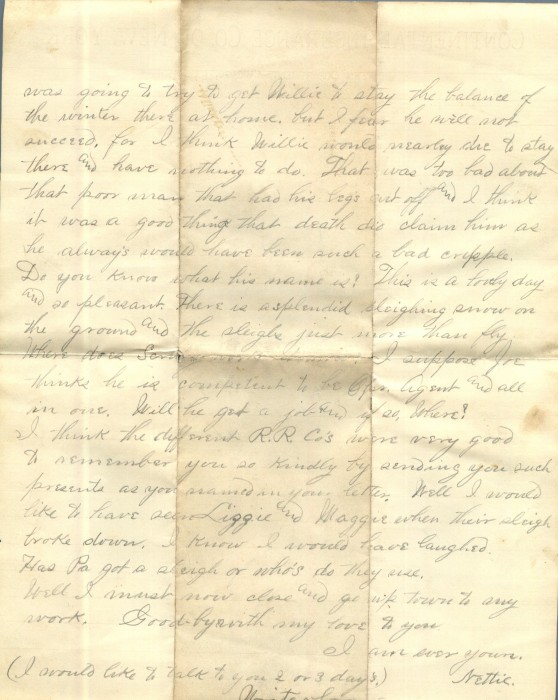 was going to try to get Willie to stay the balance of
the winter there at home. but I fear he will not
succeed, for I think Willie would nearly die to stay
there and have nothing to do. That was too bad about
that poor man that had his legs cut off and I think
it was a good thing that death did claim him as
he always would have been such a bad cripple.
Do you know what his name is? This is a lovly day
and so pleasant. There is a splendid sleighing snow on
the ground and the sleighs just more than fly.
Where does I suppose Joe
thinks he is competent to be Opr. Agent and all
in one. Will he get a job and if so, Where?
I think the different R.R. Co's were very good
to remember you so kindly by sending you such
presents as you named in your letter. Well I would
like to have seen Lizzie and Maggie when their sleigh
broke down. I know I would have laughed.
Has Pa got a sleigh or who's do they use.
Well I must now close and go up town to my
work. Good-by with my love to you
I am ever yours.
(I would like to talk to you 2 or 3 days.) Nettie.